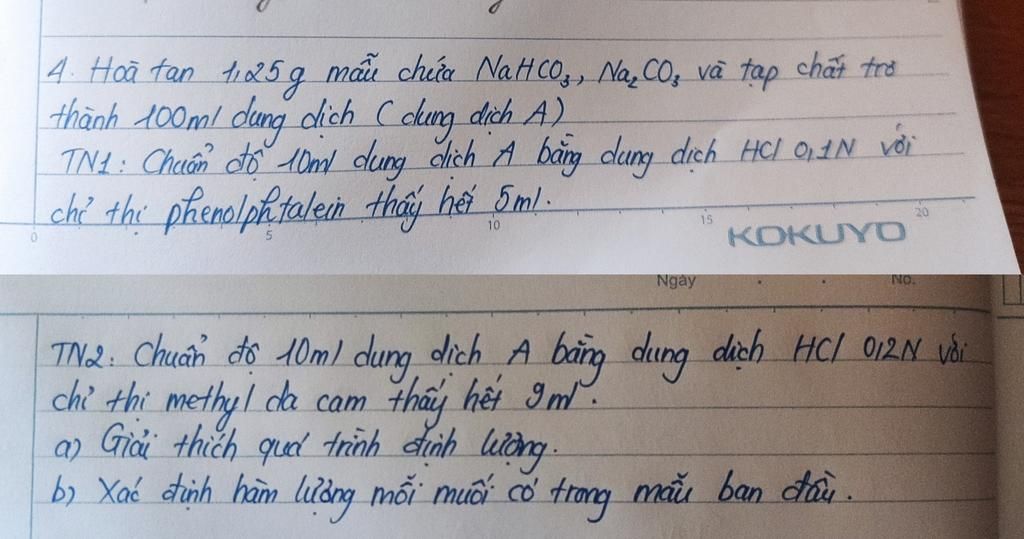 4. Hoà tan 1,25g mẫu chứa NaHCO₃, Na₂CO₃ và tạp chất trơ
thành 100ml dung dịch (dung dịch A)
TN1: Chuẩn độ 10ml dung dịch A bằng dung dịch HCl 0,1N với
chỉ thị phenolphtalein thấy hết 5ml.
0 5 10 15 20
KOKUYO
Ngày . . No.
TN2: Chuẩn độ 10ml dung dịch A bằng dung dịch HCl 0,2N với
chỉ thị methyl da cam thấy hết 9ml.
a) Giải thích quá trình định lượng.
b) Xác định hàm lượng mỗi muối có trong mẫu ban đầu.